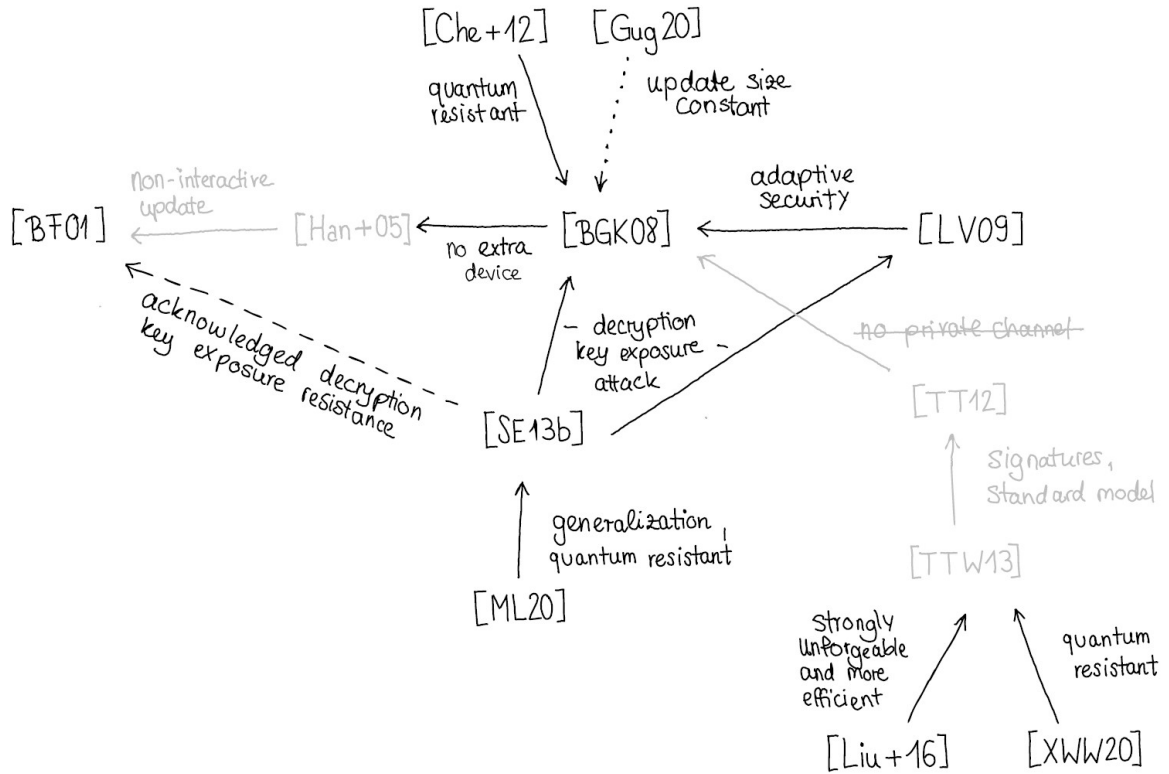 [Che+12]
[Gug20]
quantum
resistant
update size
constant
non-interactive
update
adaptive
security
[BF01]
[Han+05]
[BGK08]
[LV09]
no extra
device
acknowledged decryption
key exposure resistance
- decryption
key exposure -
attack
no private channel
[TT12]
[SE13b]
Signatures,
Standard model
generalization,
quantum resistant
[TTW13]
[ML20]
strongly
unforgeable
and more
efficient
quantum
resistant
[Liu+16]
[XWW20]